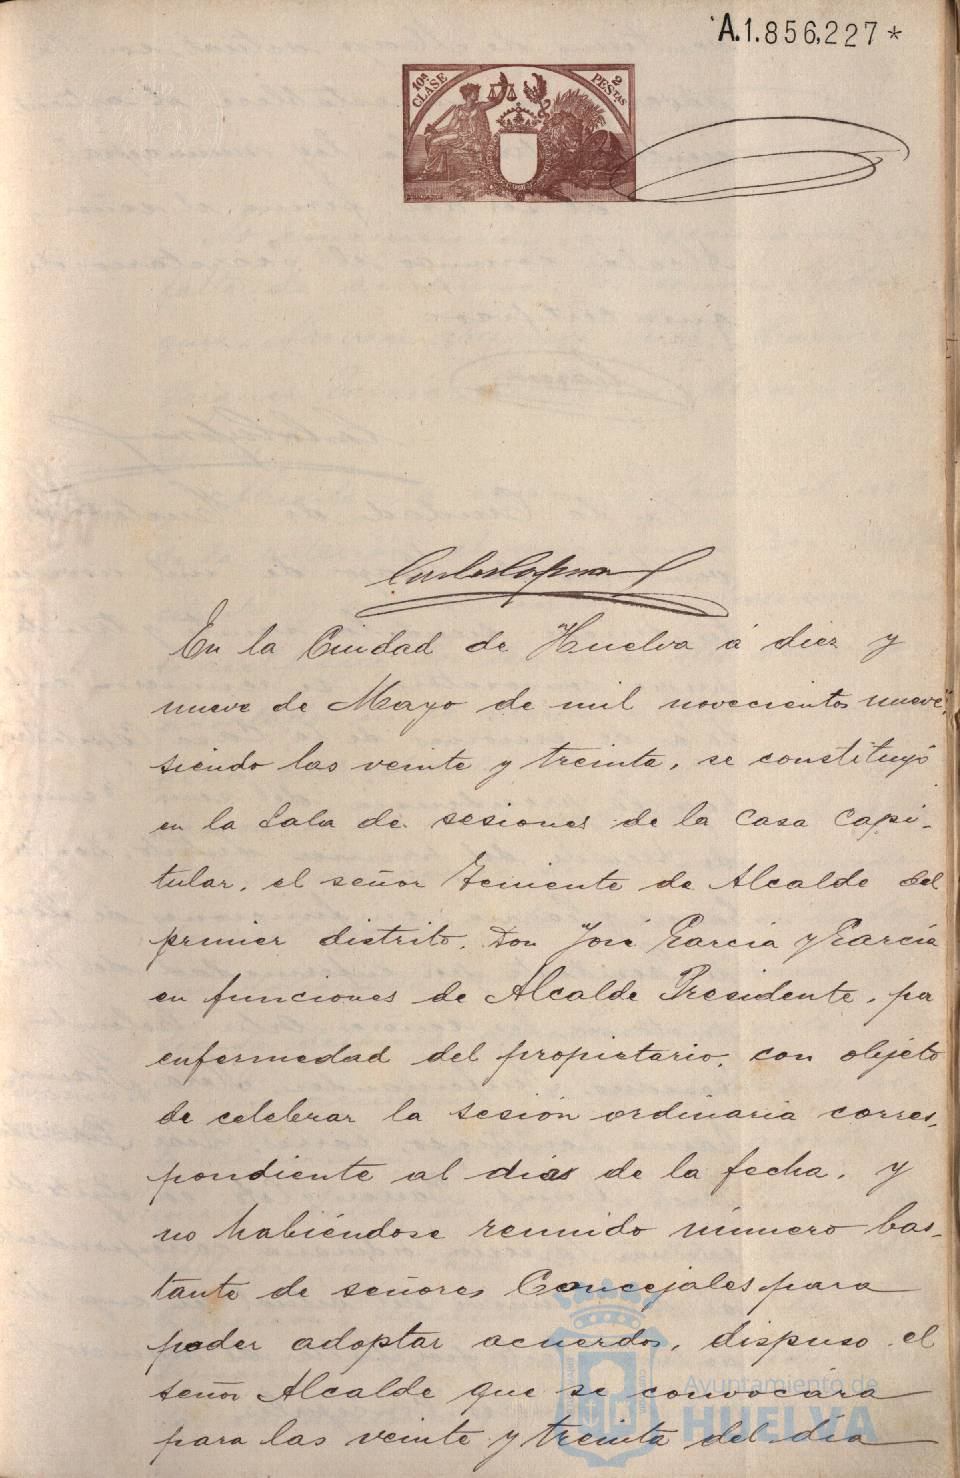 A.1.856,227*
10ª CLASE
2 PESTAS
En la Ciudad de Huelva á diez y
nueve de Mayo de mil novecientos nueve,
siendo las veinte y treinta, se constituyó
en la Sala de sesiones de la Casa Capi-
tular, el señor Teniente de Alcalde del
primer distrito, Don José García y García
en funciones de Alcalde Presidente, por
enfermedad del propietario, con objeto
de celebrar la sesión ordinaria corres-
pondiente al dia de la fecha, y
no habiéndose reunido número bas-
tante de señores Concejales para
poder adoptar acuerdos, dispuso el
señor Alcalde que se convocára
para las veinte y treinta del día
Ayuntamiento de
HUELVA